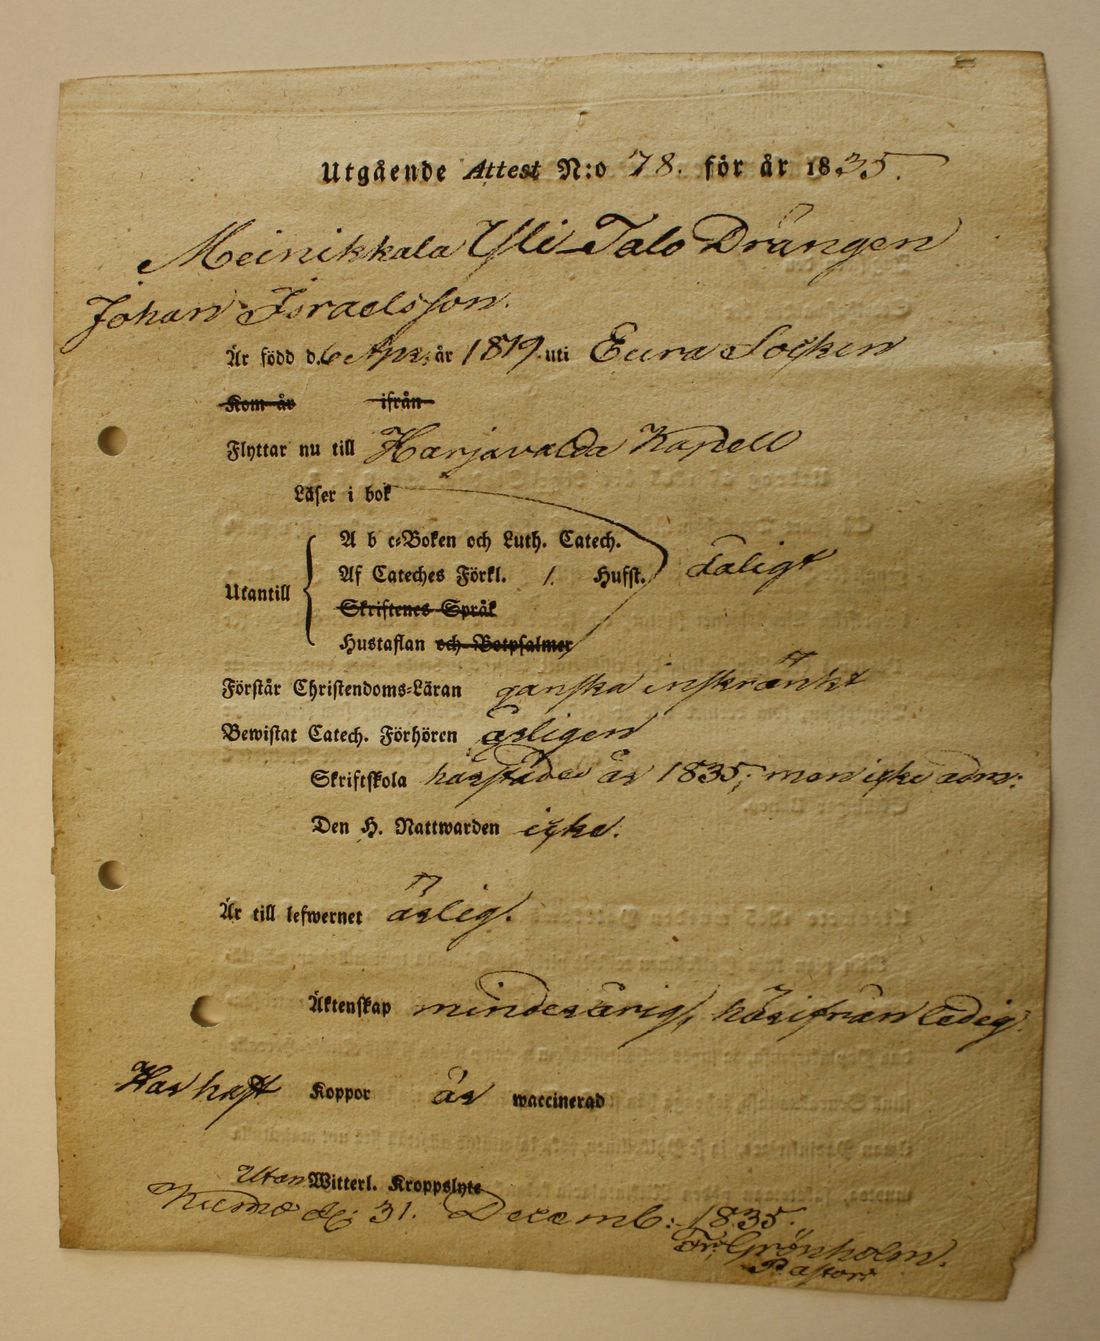 Utgående Attest N:o 78. för år 1835.
Meinikkala Yli-Talo Drängen
Johan Israelsson.
Är född d. 6 Apr. år 1819. uti Eura Socken
Kom år ifrån
Flyttar nu till Harjavalda Kapell
Läser i bok
A b c-Boken och Luth. Catech.
Af Cateches Förkl. 1. Hufst. dåligt
Utantill
Skriftenes Språk
Hustaflan och Botpsalmer
Förstår Christendoms-Läran ganska inskränkt
Bewistat Catech. Förhören årligen
Skriftskola härstädes år 1835; men icke adm:
Den H. Nattwarden icke.
Är till lefwernet ärlig.
Äktenskap minderårig, härifrån ledig.
Har haft Koppor är waccinerad
Utan Witterl. Kroppslyte
Kumo d. 31. Decemb: 1835.
Fr. Grönholm.
Pastor